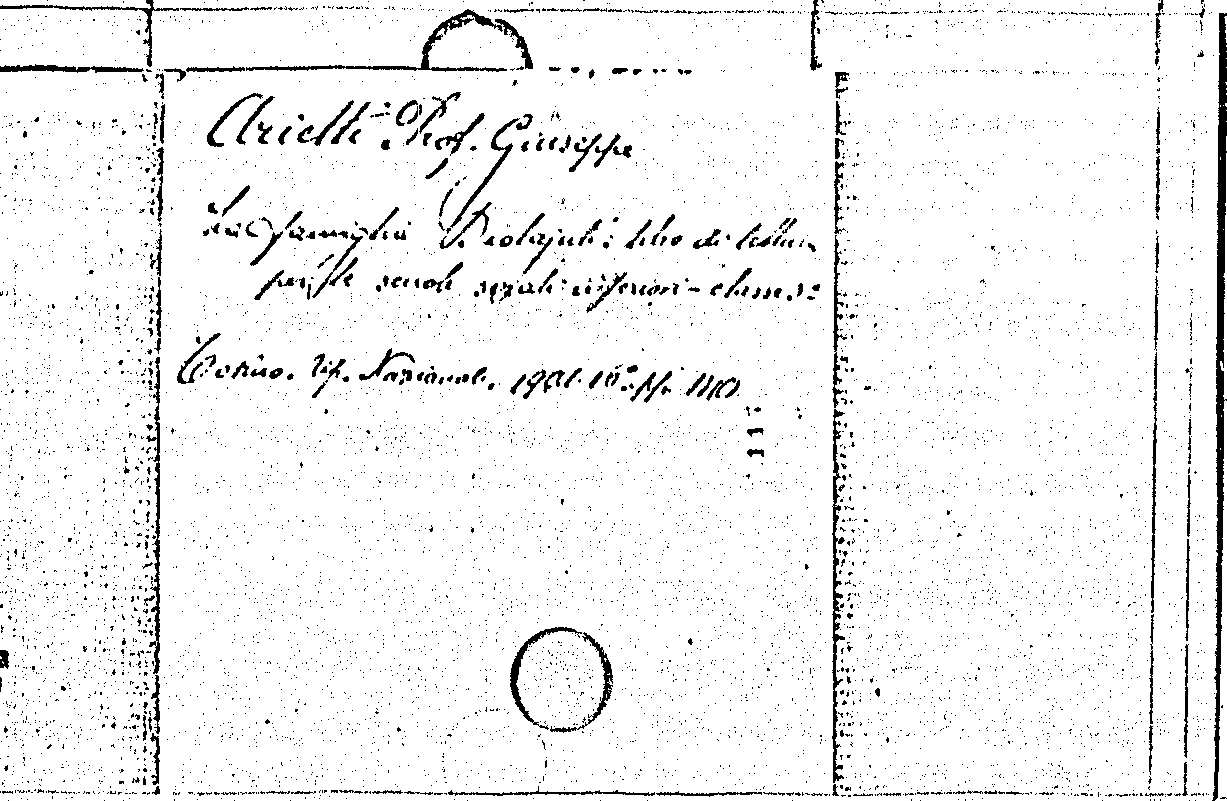 Arietti Prof. Giuseppe
La famiglia : libro di lettura
per le scuole serali inferiori - classe
Torino. Tip. Nazionale. 1901. 16° pp. 110